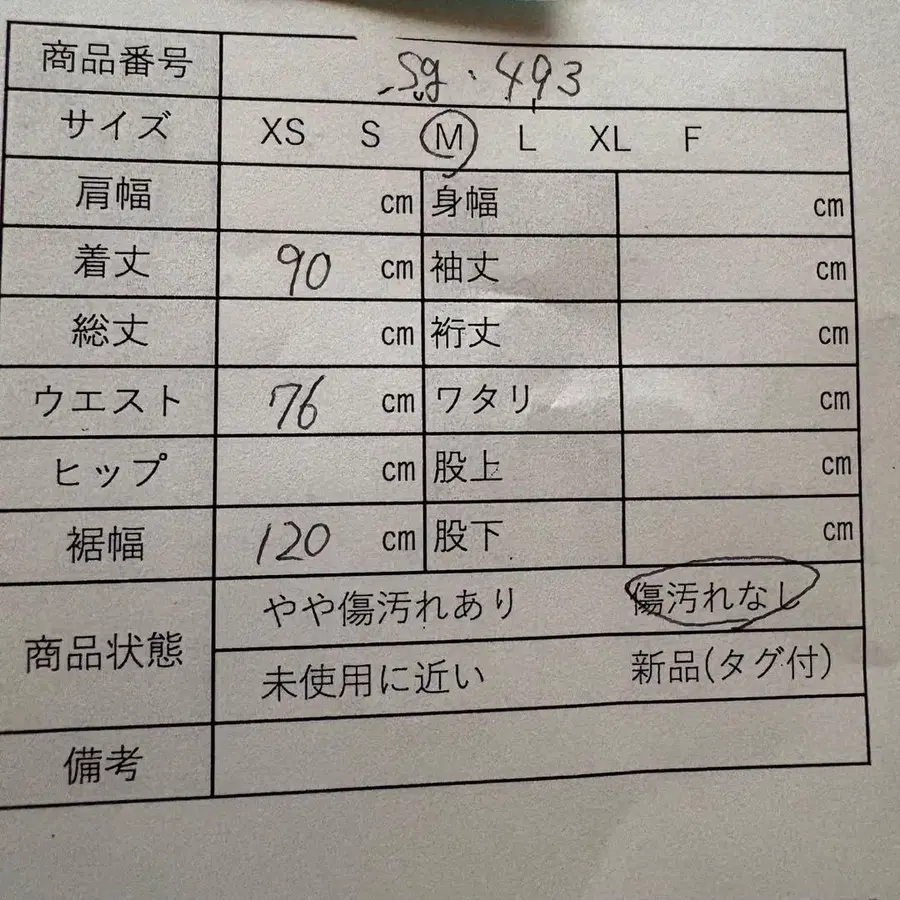 商品番号 Sg.493
サイズ XS S M L XL F
肩幅 cm 身幅 cm
着丈 90 cm 袖丈 cm
総丈 cm 裄丈 cm
ウエスト 76 cm ワタリ cm
ヒップ cm 股上 cm
裾幅 120 cm 股下 cm
商品状態 やや傷汚れあり 傷汚れなし
未使用に近い 新品(タグ付)
備考